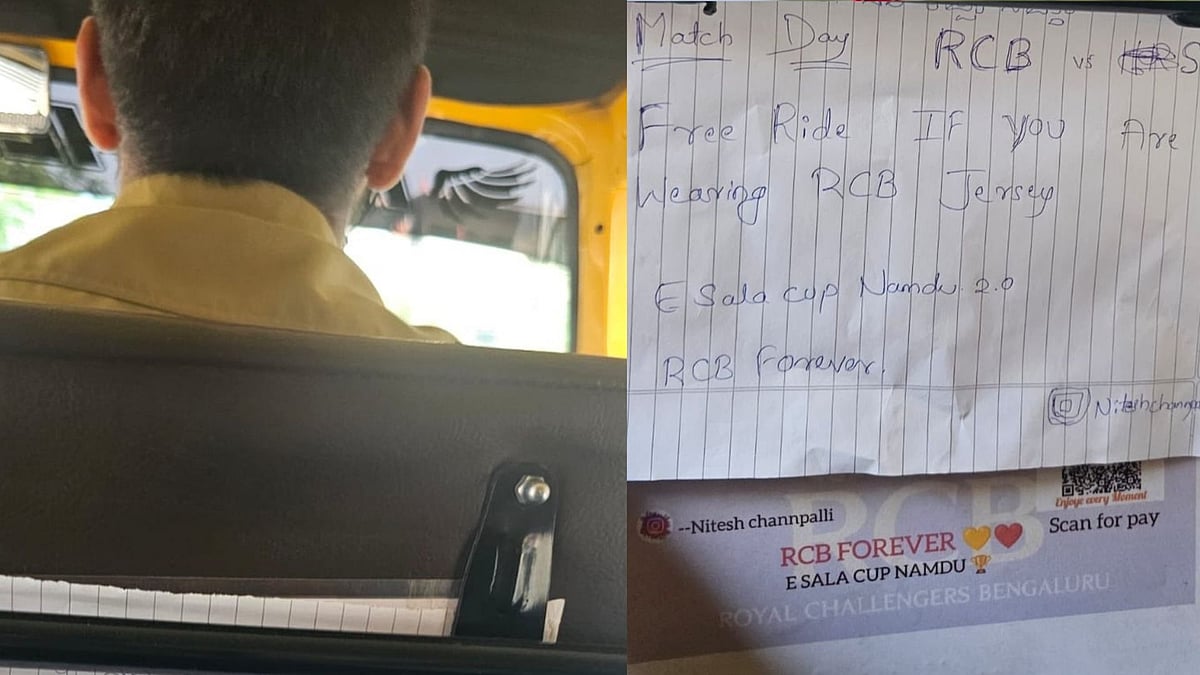 Match Day RCB vs S
Free Ride IF you Are
Wearing RCB Jersey
E Sala cup Namdu 2.0
RCB Forever.
Enjoye every Moment
--Nitesh channpalli
Scan for pay
RCB FOREVER 💛❤️
E SALA CUP NAMDU 🏆
RCB
ROYAL CHALLENGERS BENGALURU